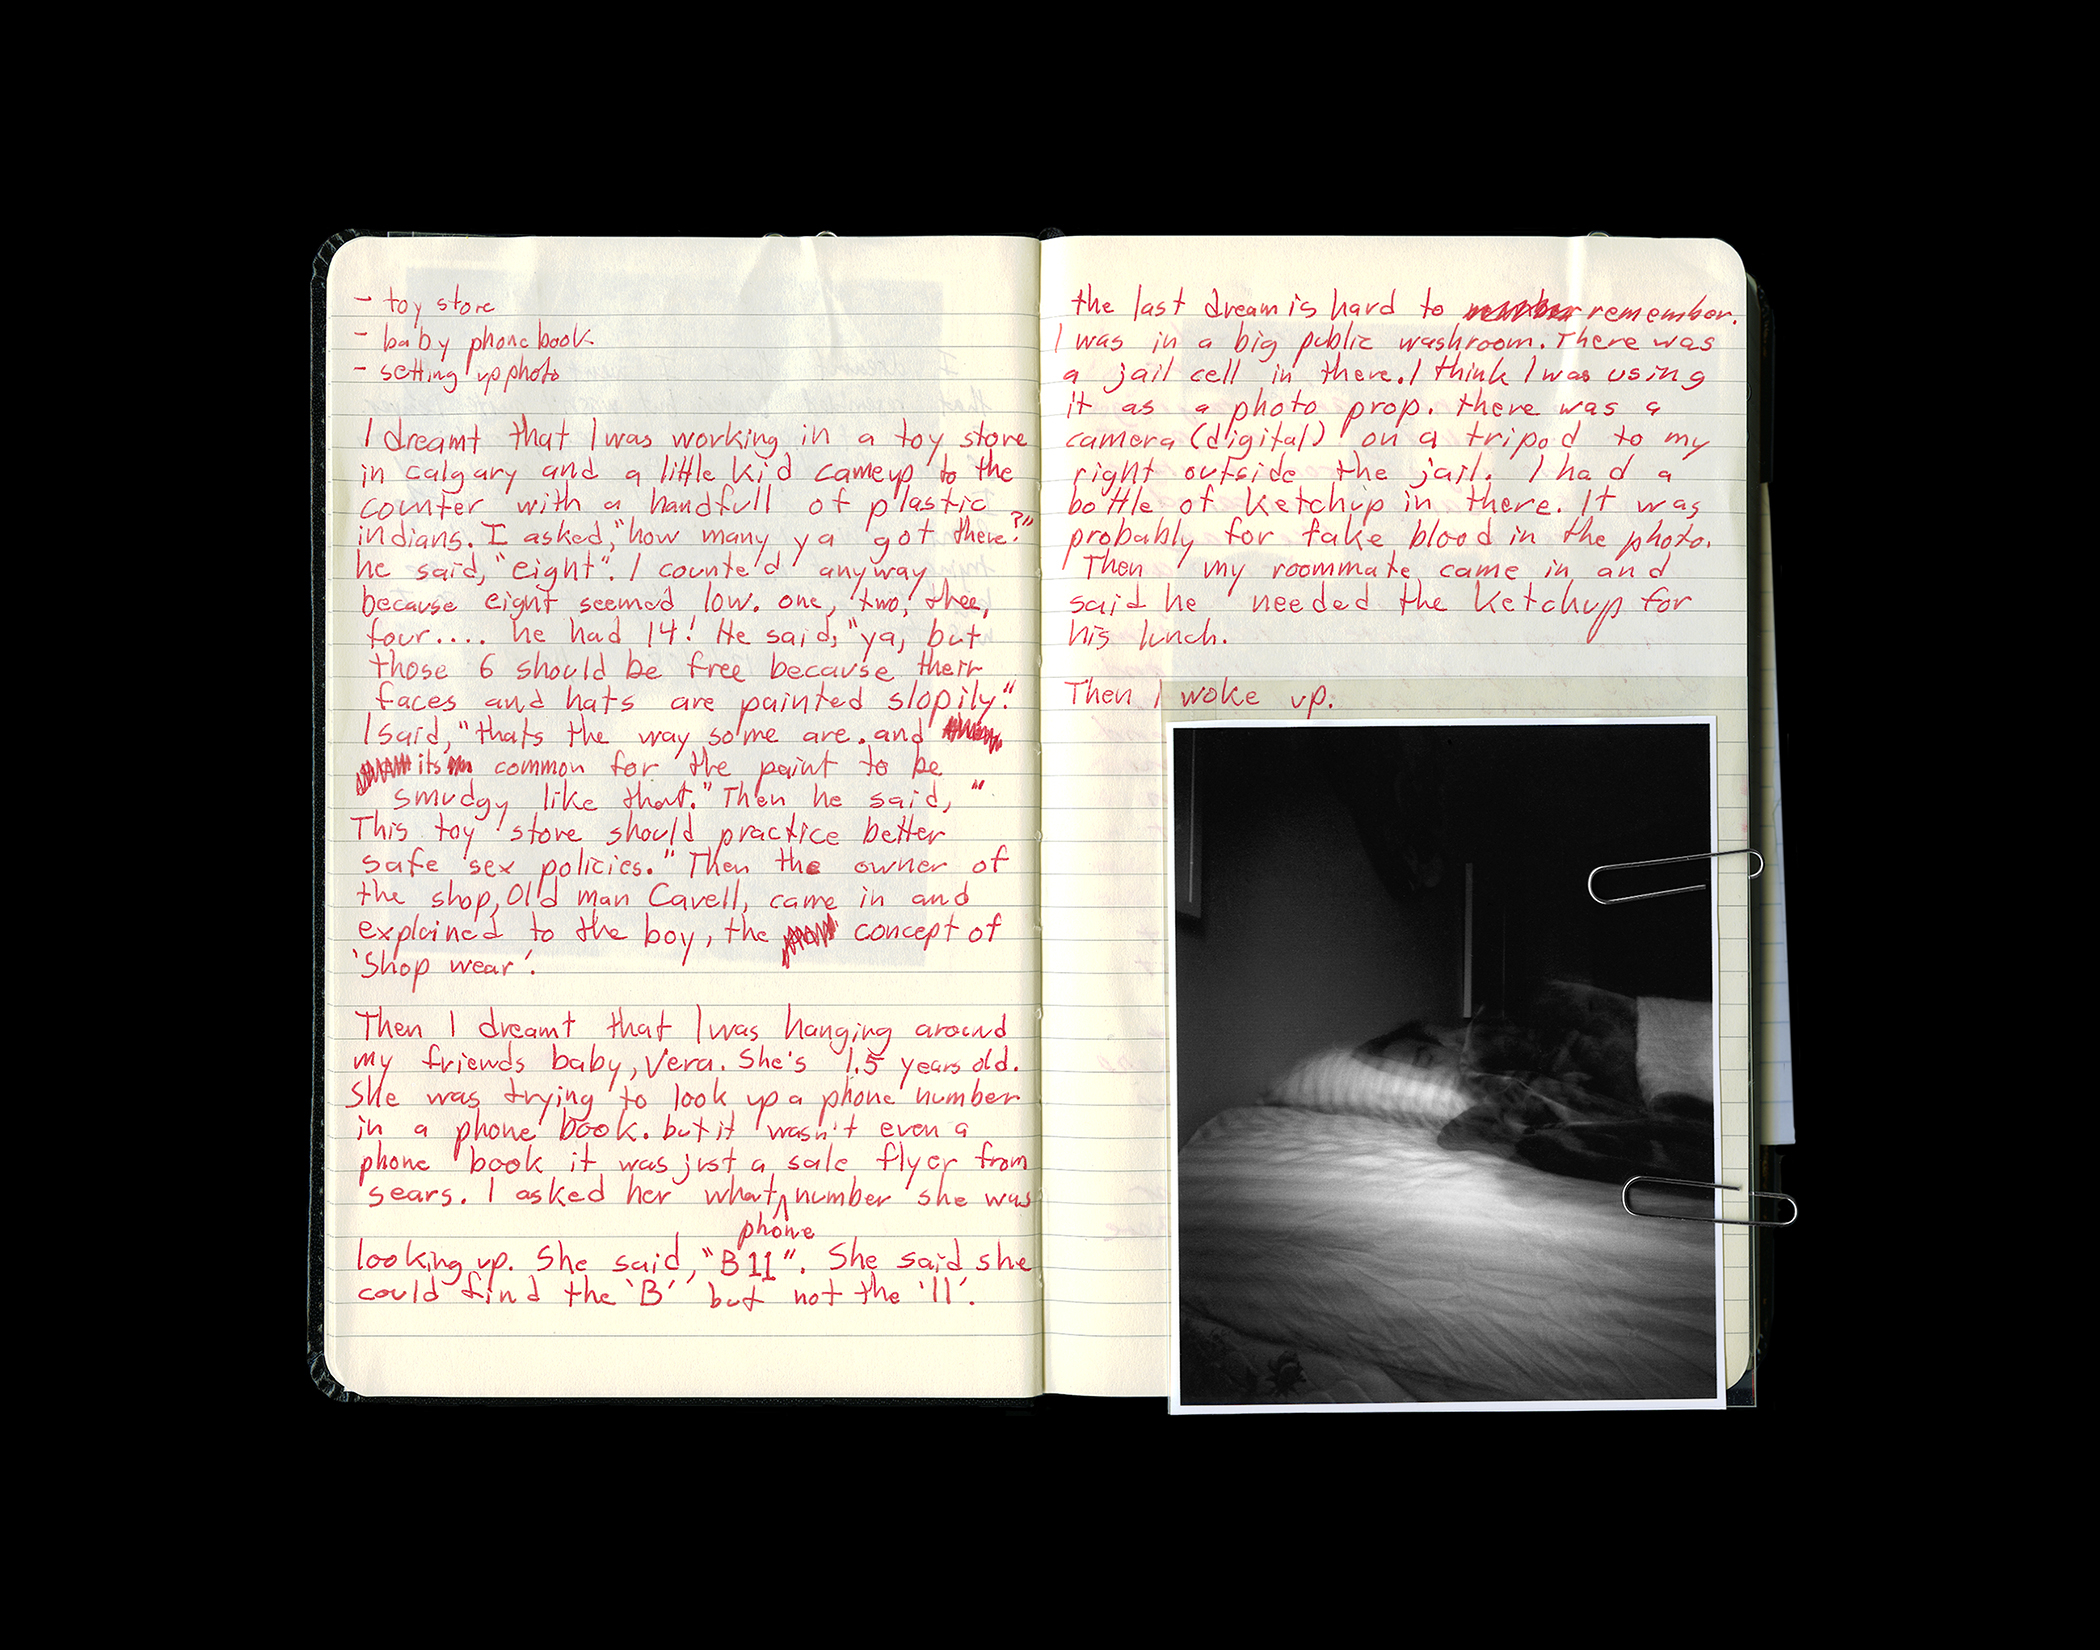 - toy store
- baby phone book
- setting up photo
I dreamt that I was working in a toy store
in calgary and a little kid came up to the
counter with a handfull of plastic
indians. I asked, "how many ya got there?"
he said, "eight". I counted anyway
because eight seemed low. one, two, thee,
four.... he had 14! He said, "ya, but
those 6 should be free because their
faces and hats are painted slopily."
I said, "thats the way some are. and
its common for the paint to be
smudgy like that." Then he said, "
This toy store should practice better
safe sex policies." Then the owner of
the shop, Old man Cavell, came in and
explained to the boy, the concept of
'Shop wear'.
Then I dreamt that I was hanging around
my friends baby, Vera. She's 1.5 years old.
She was trying to look up a phone number
in a phone book. but it wasn't even a
phone book it was just a sale flyer from
sears. I asked her what ^ number she was
phone
looking up. She said, "B11". She said she
could find the 'B' but not the '11'.
the last dream is hard to remember.
I was in a big public washroom. There was
a jail cell in there. I think I was using
it as a photo prop. there was a
camera (digital) on a tripod to my
right outside the jail. I had a
bottle of ketchip in there. It was
probably for fake blood in the photo.
Then my roommate came in and
said he needed the ketchup for
his lunch.
Then I woke up.